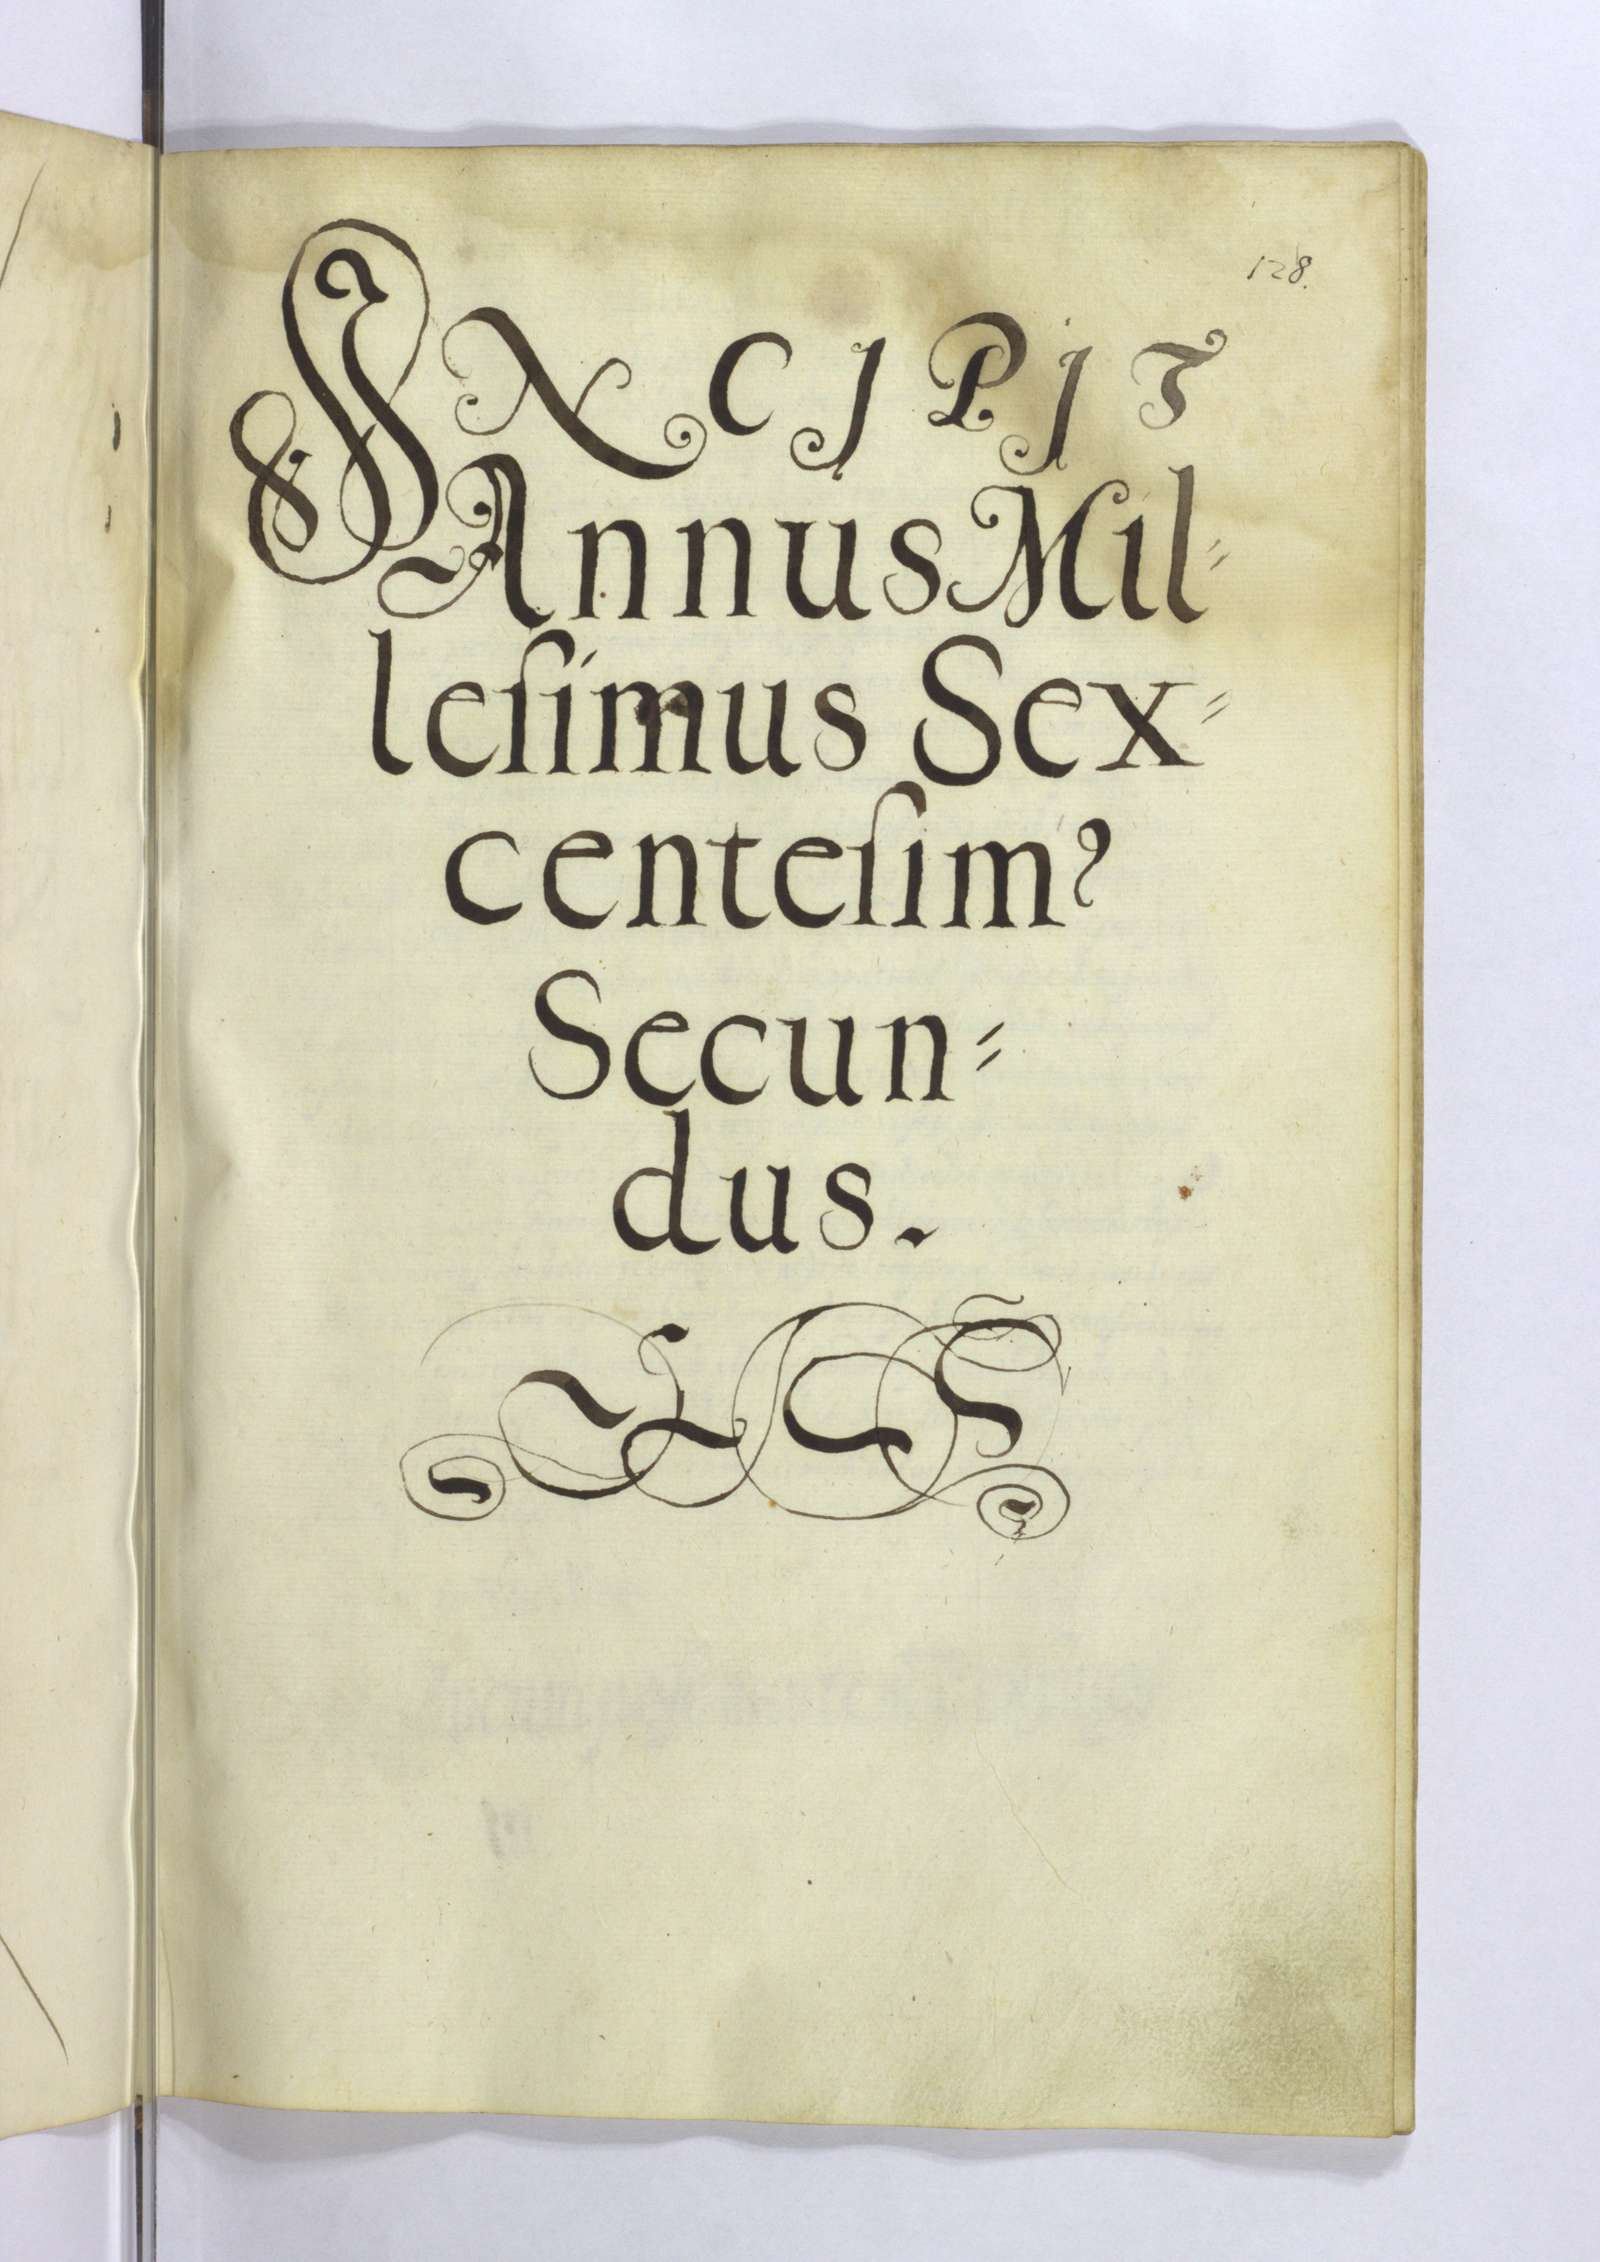 128.
EXCJPJT
Annus Mil=
leſimus Sex=
centeſimꝰ
Secun=
dus.